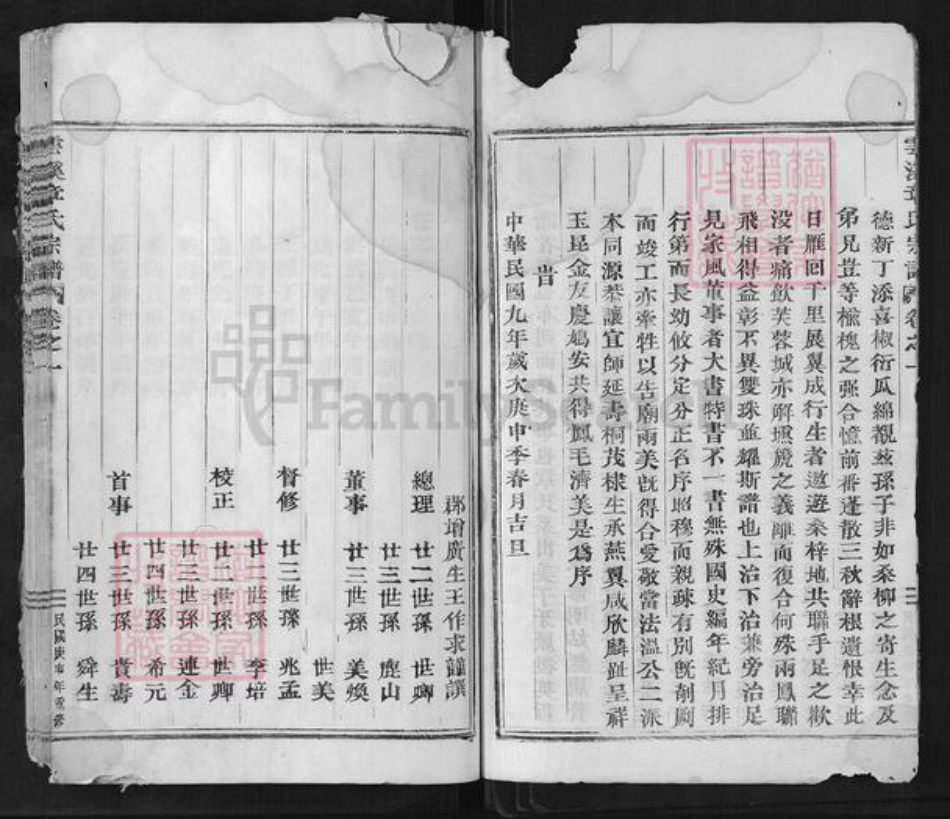 德新丁添喜椒衍瓜綿覩茲孫子非如桑柳之寄生念及
弟兄豈等榆槐之强合憶前番蓬散三秋辭根遺恨幸此
日雁回千里展翼成行生者遨遊桑梓地共聯手足之歡
没者痛飲芙蓉城亦解壎篪之義離而復合何殊兩鳳聯
飛相得益彰不異雙珠並耀斯譜也上治下治兼旁治足
見家風董事者大書特書不一書無殊國史編年紀月排
行第而長幼攸分定分正名序昭穆而親疎有別旣剞劂
而竣工亦牽牲以告廟兩美旣得合愛敬當法溫公二派
本同源恭讓宜師延壽桐茂棣生承燕翼咸欣麟趾呈祥
玉昆金友慶鳩安共得鳳毛濟美是爲序
旹
中華民國九年歲次庚申季春月吉旦
郡增廣生王作求謹譔
總理 廿二世孫 世卿
廿三世孫 鹿山
董事 廿三世孫 美煥
世美
督修 廿三世孫 兆孟
廿三世孫 李培
校正 廿二世孫 世卿
廿三世孫 連金
廿四世孫 希元
首事 廿三世孫 貴壽
廿四世孫 舜生
雲溪章氏宗譜 卷之一
民國庚申年重修
FamilySearch